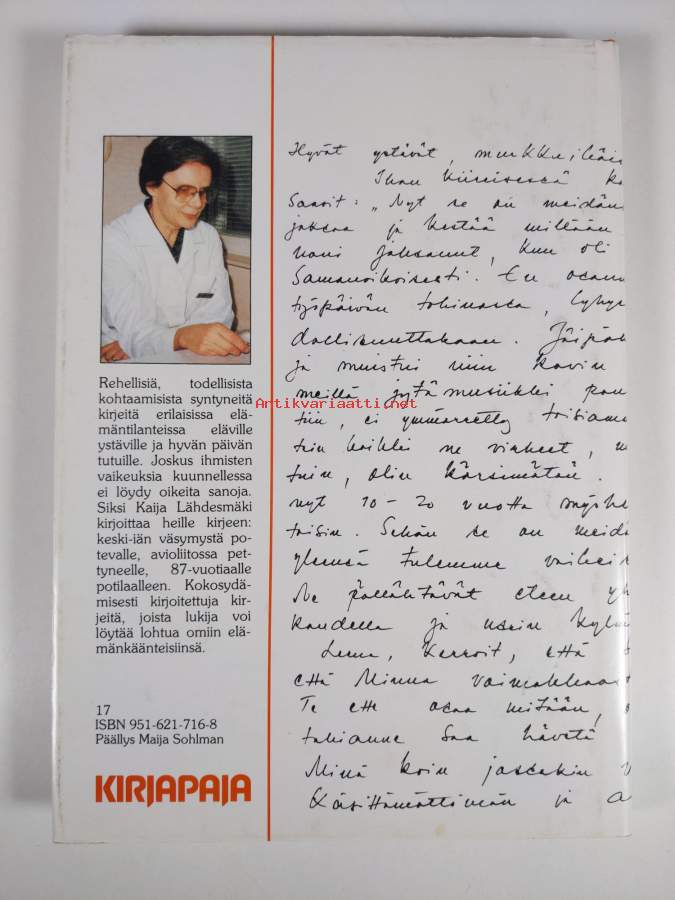 Rehellisiä, todellisista
kohtaamisista syntyneitä
kirjeitä erilaisissa elä-
mäntilanteissa eläville
ystäville ja hyvän päivän
tutuille. Joskus ihmisten
vaikeuksia kuunnellessa
ei löydy oikeita sanoja.
Siksi Kaija Lähdesmäki
kirjoittaa heille kirjeen:
keski-iän väsymystä po-
tevalle, avioliitossa pet-
tyneelle, 87-vuotiaalle
potilaalleen. Kokosydä-
misesti kirjoitettuja kir-
jeitä, joista lukija voi
löytää lohtua omiin elä-
mänkäänteisiinsä.
17
ISBN 951-621-716-8
Päällys Maija Sohlman
KIRJAPAJA
Hyvät ystävät,
Ihan kiireisessä
Sanoit: "Nyt se on meidän
jaksaa ja kestää mitään
jaksanut, kun oli
Samanaikaisesti. En
työpäivän tohinassa,
Jäi
ja muistui niin kovin
meillä jytämusiikki
ei ymmärretty
kaikki ne vinkeet,
olin kärsimätön
nyt 10-20 vuotta
toisin. Sehän se on
yleensä tulemme
Ne pöllähtävät eteen
kaudella ja usein
Leena, kerroit, että
että Minna
Te ette osaa mitään,
tähianne saa hävetä
Minä koin jossakin
Käsittämättömän ja
Artikvariaatti.net